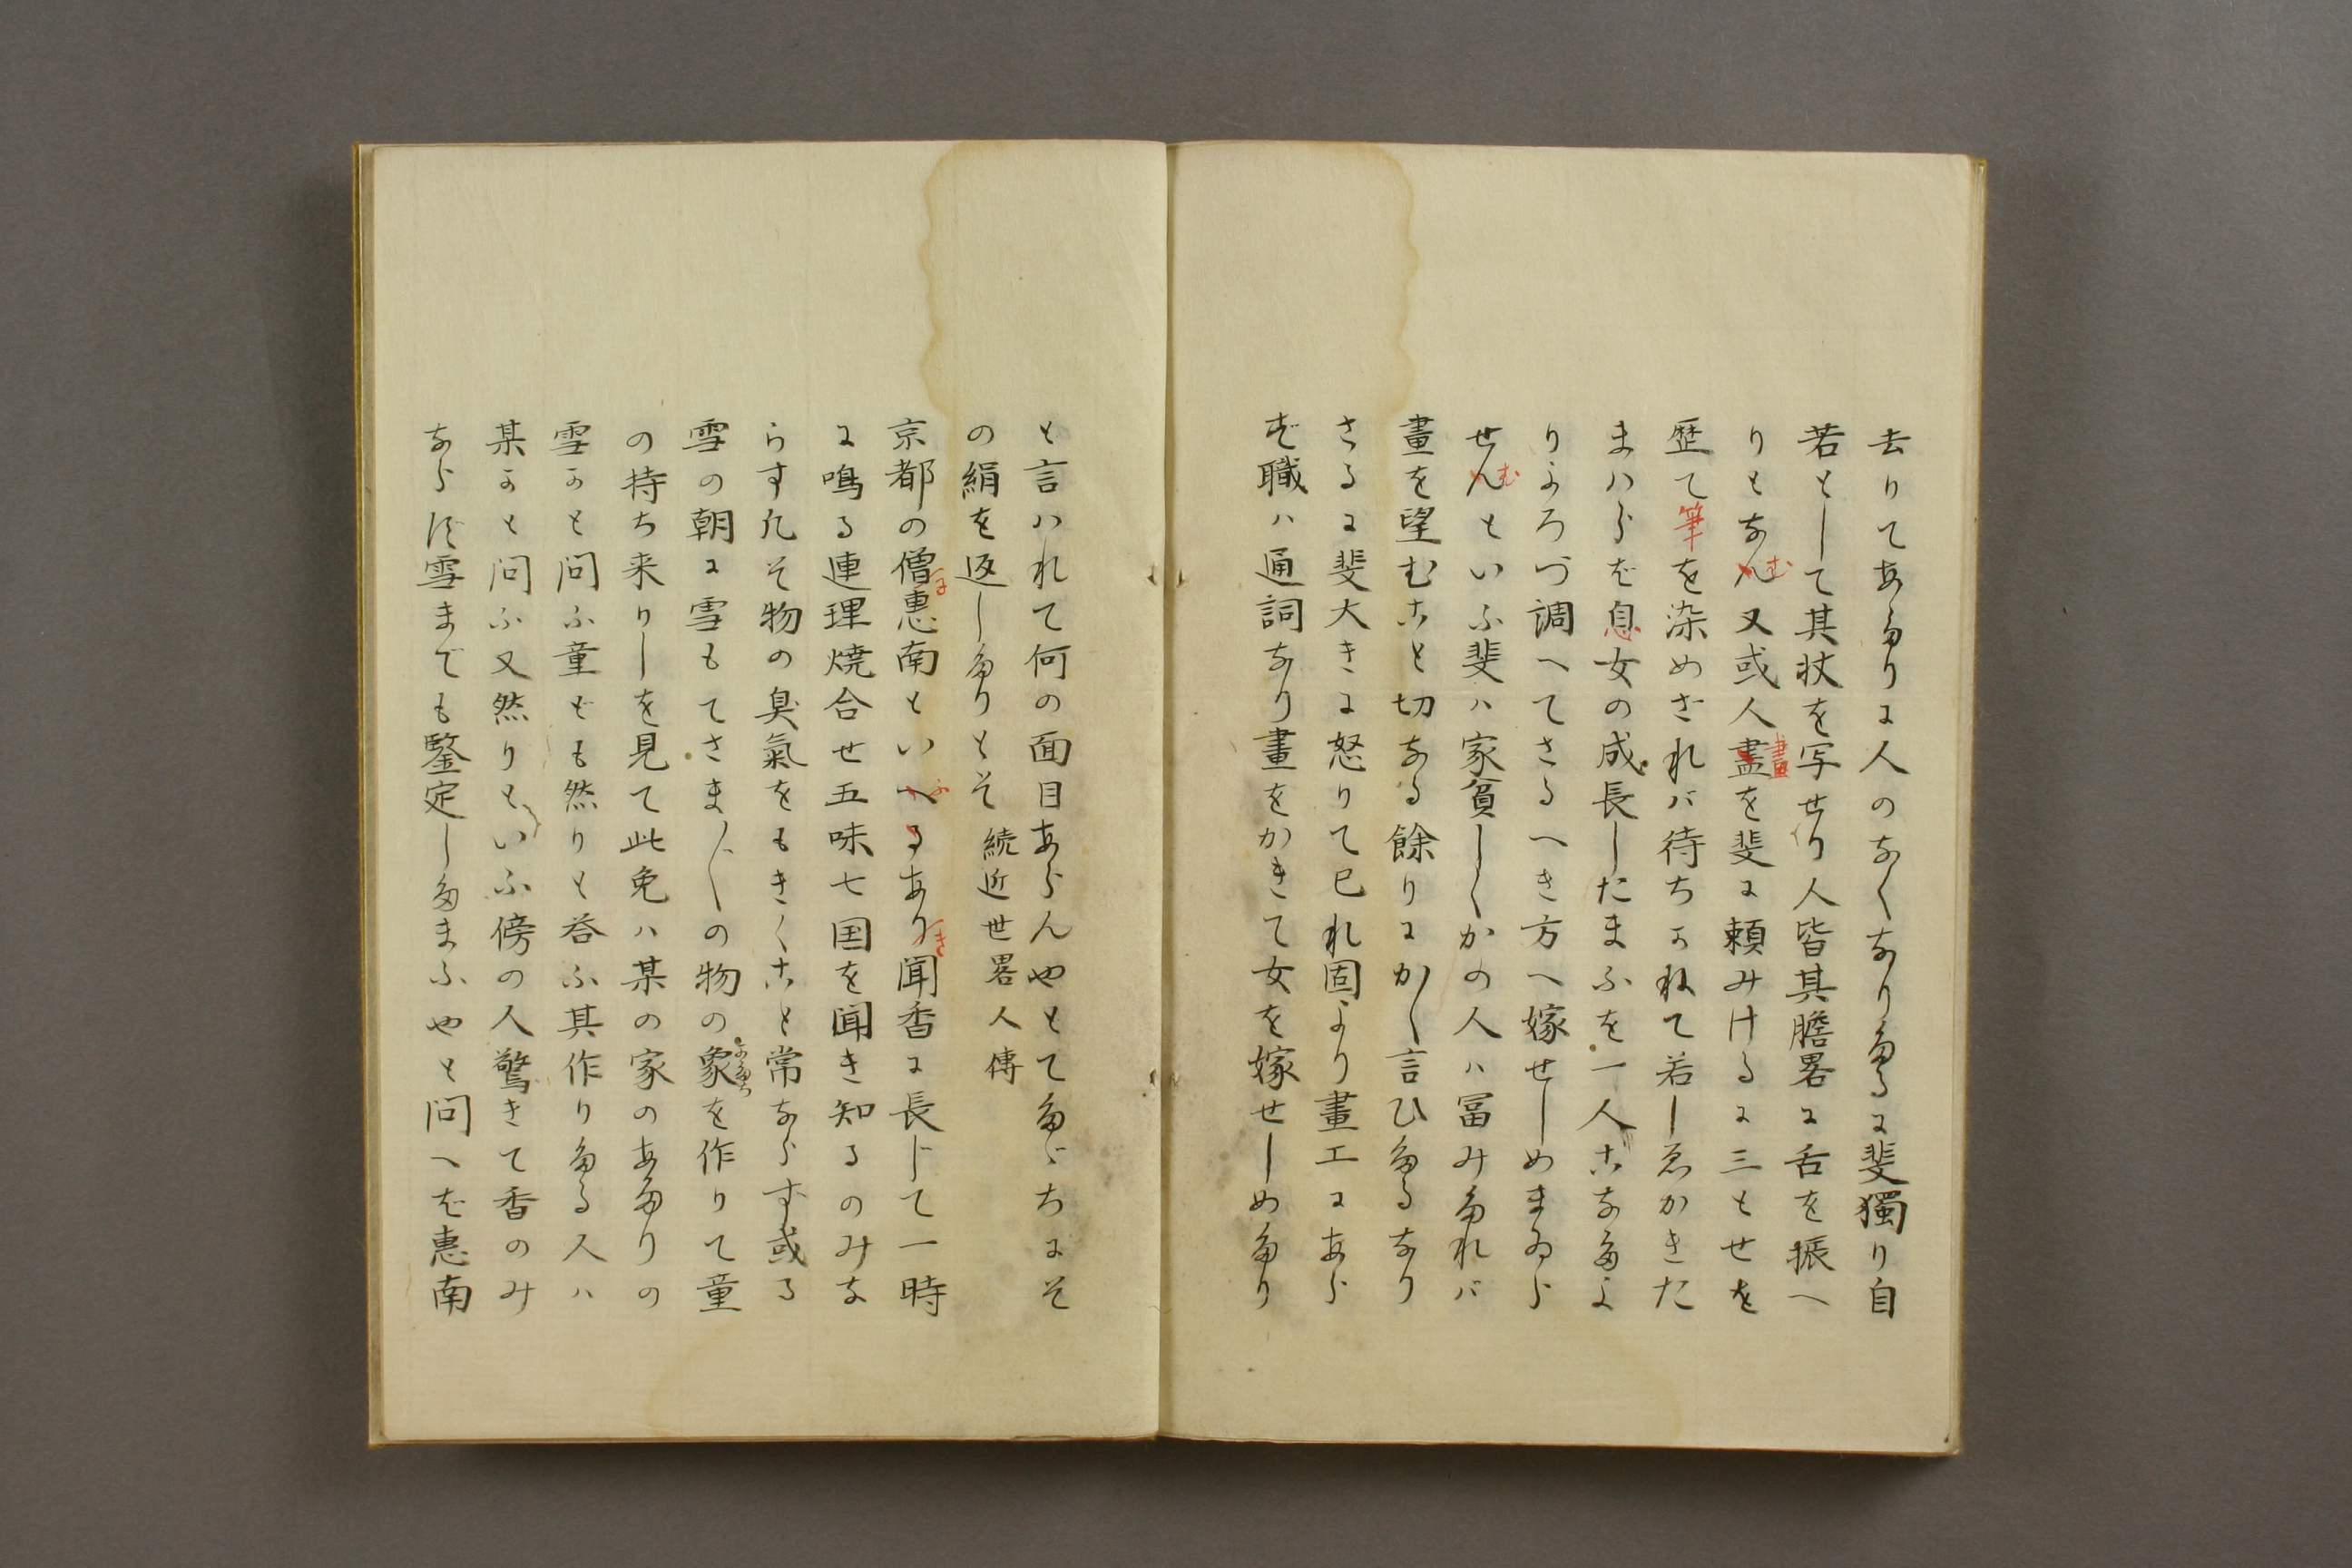 去りてあたりに人のなくなりたるに斐獨り自
若として其状を写せり人皆其膽畧に舌を振へ
りとなんむ又或人盡畫を斐に頼みけるに三とせを
歴て筆を染めざれバ待ちかねて若しゑかきた
まハらば息女の成長したまふを一人こなたよ
りよろづ調へてさるへき方へ嫁せしめまゐら
せんむといふ斐ハ家貧しくかの人ハ冨み たれバ
畫を望むこと切なる餘りにかく言ひたるなり
さるに斐大きに怒りて已れ固より畫工にあら
ず職ハ通詞なり畫をかきて女を嫁せしめたり
と言ハれて何の面目あらんやとてたゞちにそ
の絹を返したりとそ 続近世畧人傳
京都の僧に惠南といへふるありき聞香に長じて一時
に鳴る連理焼合せ五味七国を聞き知るのみな
らす凡そ物の臭氣をもきくこと常ならず或る
雪の朝に雪もてさま〴〵の物の象かたちを作りて童
の持ち来りしを見て此兔ハ某の家のあたりの
雪かと問ふ童ども然りと荅ふ其作りたる人ハ
某かと問ふ又然りといふ傍の人驚きて香のみ
ならず雪までも鑒定したまふやと問へば惠南